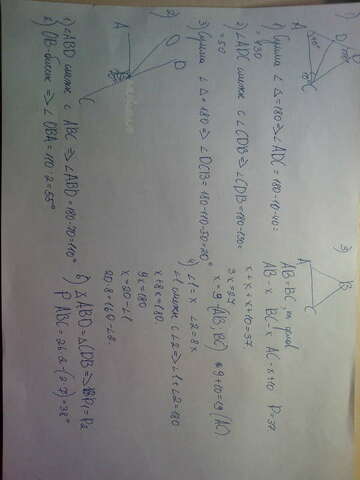 1)
A
40°
110°
D
B
C
1) Сумма ∠ Δ=180 ⇒ ∠ADC = 180-10-40=
=130
2) ∠ADC смеж с ∠CDB ⇒ ∠CDB = 180-130=
=50
3) Сумма ∠ Δ = 180 ⇒ ∠DCB = 180-110-50=20°
2)
A
O
D
B
C
1) ∠ABD смеж с ABC ⇒ ∠ABD = 180-70=110°
2) OB-бисс ⇒ ∠OBA = 110:2=55°
3)
A
B
C
AB=BC по услов
AB-x BC-x AC-x+10 P=37
x+x+x+10=37
3x=27
x=9-(AB,BC) 9+10=19(AC)
4) ∠1=x ∠2=8x
∠1 смеж с ∠2 ⇒ ∠1+∠2=180
x+8x=180
9x=180
x=20-∠1
20·8=160-∠2
5) ΔABD=ΔCDB ⇒ P1=P2
P ABC=26·2-(2·7)=38°